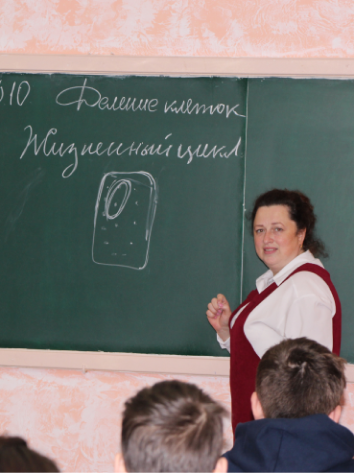 10 Деление клеток
Жизненный цикл